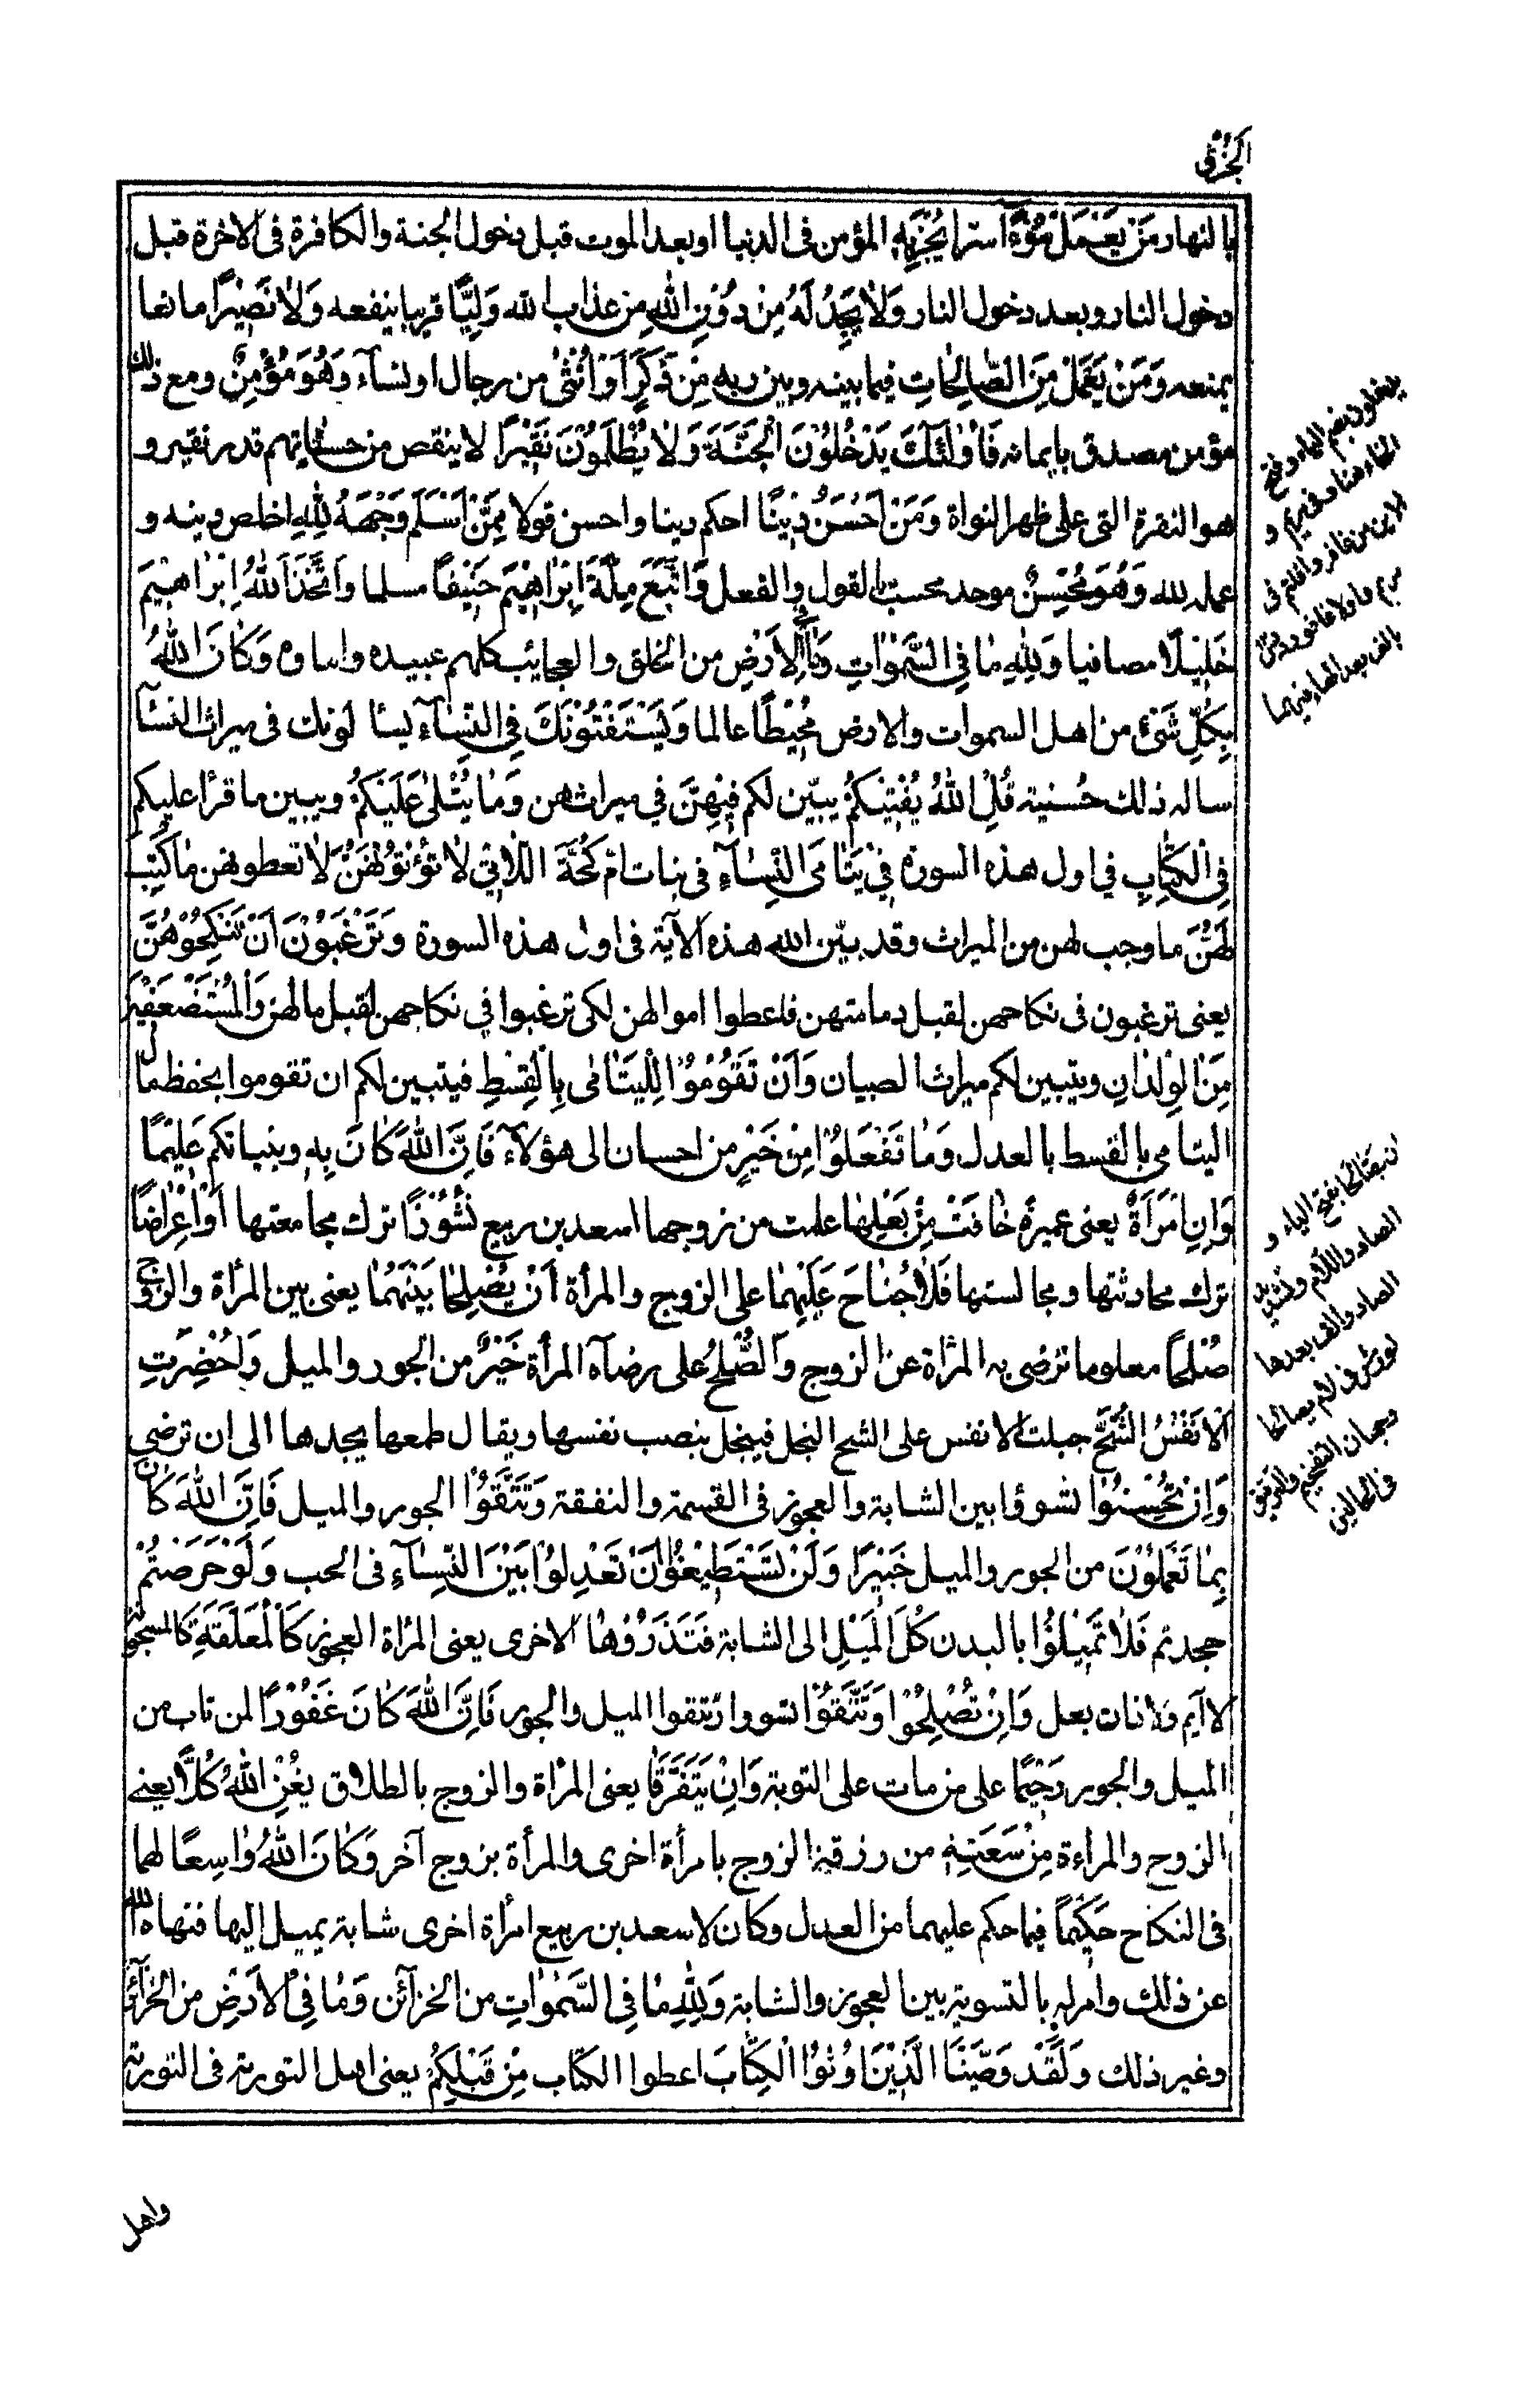 الجزؤ
بالنهار مَنْ يَعْمَلْ سُوْٓءًا سرا يُجْزَ بِهٖ المؤمن فى الدنيا او بعد الموت قبل دخول الجنة والكافرة فى الاخرة قبل
دخول النار وبعد دخول النار وَلَا يَجِدْ لَهُ مِنْ دُوْنِ اللّٰهِ من عذاب الله وَلِيًّا قريبا ينفعه وَلَا نَصِيْرًا مانعا
يمنعه وَمَنْ يَعْمَلْ مِنَ الصّٰالِحَاتِ فيما بينه وبين ربه مِنْ ذَكَرٍ اَوْ اُنْثٰى من رجال او نسآء وَهُوَ مُؤْمِنٌ ومع ذلك
مؤمن مصدق بايمانه فَاُولٰئِكَ يَدْخُلُوْنَ الْجَنَّةَ وَلَا يُظْلَمُوْنَ نَقِيْرًا لا ينقص من حسناتهم قدر نقير و
هو النقرة التى على ظهر النواة وَمَنْ اَحْسَنُ دِيْنًا احكم دينا واحسن قولا مِمَّنْ اَسْلَمَ وَجْهَهُ لِلّٰهِ اخلص دينه و
عمله لله وَهُوَ مُحْسِنٌ موحد محسب بالقول والفعل وَاتَّبَعَ مِلَّةَ اِبْرَاهِيْمَ حَنِيْفًا مسلما وَاتَّخَذَ اللّٰهُ اِبْرَاهِيْمَ
خَلِيْلًا مصافيا وَلِلّٰهِ مَا فِى السَّمٰوَاتِ وَمَا فِى الْاَرْضِ من الخلق والعجايب كلهم عبيده واماوه وَكَانَ اللّٰهُ
بِكُلِّ شَىْءٍ من اهل السموات والارض مُحِيْطًا عالما وَيَسْتَفْتُوْنَكَ فِى النِّسَآءِ يسئا لونك فى ميراث النسآ
ساله ذلك حُسنية قُلِ اللّٰهُ يُفْتِيْكُمْ يبيّن لكم فِيْهِنَّ في ميراثهن وَمَا يُتْلٰى عَلَيْكُمْ ويبين ما قرأ عليكم
فِى الْكِتَابِ في اول هذه السورة فِيْ يَتَامَى النِّسَآءِ فى بنات ام كحّة اللّاتِيْ لَا تُؤْتُوْنَهُنَّ لا تعطونهن مَا كُتِبَ
لَهُنَّ ما وجب لهن من الميراث وقد بيّن الله هذه الآية فى اول هذه السورة وَتَرْغَبُوْنَ اَنْ تَنْكِحُوْهُنَّ
يعنى ترغبون فى نكاحهن لقبل دمامتهن فاعطوا اموالهن لكى ترغبوا في نكاحهن لقبل مالهن وَالْمُسْتَضْعَفِيْنَ
مِنَ الْوِلْدَانِ ويتبين لكم ميراث الصبيان وَاَنْ تَقُوْمُوْا لِلْيَتَامٰى بِالْقِسْطِ فيتبين لكم ان تقوموا بحفظ مال
اليتامى بالقسط بالعدل وَمَا تَفْعَلُوْا مِنْ خَيْرٍ من احسان الى هؤلآء فَاِنَّ اللّٰهَ كَانَ بِهٖ وبنياتكم عَلِيْمًا
وَاِنِ امْرَاَةٌ يعنى عميرة خَافَتْ مِنْ بَعْلِهَا علمت من زوجها اسعد بن ربيع نُشُوْزًا ترك مجامعتها اَوْ اِعْرَاضًا
ترك محادثتها ومجالستها فَلَا جُنَاحَ عَلَيْهِمَا على الزوج والمرأة اَنْ يُصْلِحَا بَيْنَهُمَا يعنى بين المرأة والزوج
صُلْحًا معلوما ترضى به المرأة عن الزوج وَالصُّلْحُ على رضآه المرأة خَيْرٌ من الجور والميل وَاُحْضِرَتِ
الْاَنْفُسُ الشُّحَّ جبلت الانفس على الشح البخل فيبخل بنصب نفسها ويقال طمعها يجدها الى ان ترضى
وَاِنْ تُحْسِنُوْا تشوؤا بين الشابة والعجوز فى القسمة والنفقة وَتَتَّقُوْا الجور والميل فَاِنَّ اللّٰهَ كَانَ
بِمَا تَعْمَلُوْنَ من الجور والميل خَبِيْرًا وَلَنْ تَسْتَطِيْعُوْا اَنْ تَعْدِلُوْا بَيْنَ النِّسَآءِ فى الحب وَلَوْ حَرَصْتُمْ
جهدتم فَلَا تَمِيْلُوْا بالبدن كُلَّ الْمَيْلِ الى الشابة فَتَذَرُوْهَا الاخرى يعنى المرأة العجوز كَالْمُعَلَّقَةِ كالمسجونة
لا آيم ولا ذات بعل وَاِنْ تُصْلِحُوْا وَتَتَّقُوْا تسووا وتتقوا الميل والجور فَاِنَّ اللّٰهَ كَانَ غَفُوْرًا لمن تاب من
الميل والجور رَحِيْمًا على من مات على التوبة وَاِنْ يَتَفَرَّقَا يعنى المرأة والزوج بالطلاق يُغْنِ اللّٰهُ كُلًّا يعنے
الزوج والمراءة مِنْ سَعَتِهٖ من رزقه الزوج بامرأة اخرى والمرأة بزوج آخر وَكَانَ اللّٰهُ وَاسِعًا لهما
فى النكاح حَكِيْمًا فيما حكم عليهما من العدل وكان لاسعد بن ربيع امرأة اخرى شابة يميل اليها فنهاه الله
عن ذلك وامر له بالتسوية بين العجوز والشابة وَلِلّٰهِ مَا فِى السَّمٰوَاتِ من الخزآئن وَمَا فِى الْاَرْضِ من الخزآئن
وغير ذلك وَلَقَدْ وَصَّيْنَا الَّذِيْنَ اُوتُوا الْكِتَابَ اعطوا الكتاب مِنْ قَبْلِكُمْ يعنى اهل التورية فى التورية
بضم الياء وفتح
الخاء هنا وفى مريم و
بفتح الياء و
الصاد واللام وتشديد
الصاد والف بعدها
لورش فى لام يصالحا
وجهان التفخيم والترقيق
فى الحالين
واهل